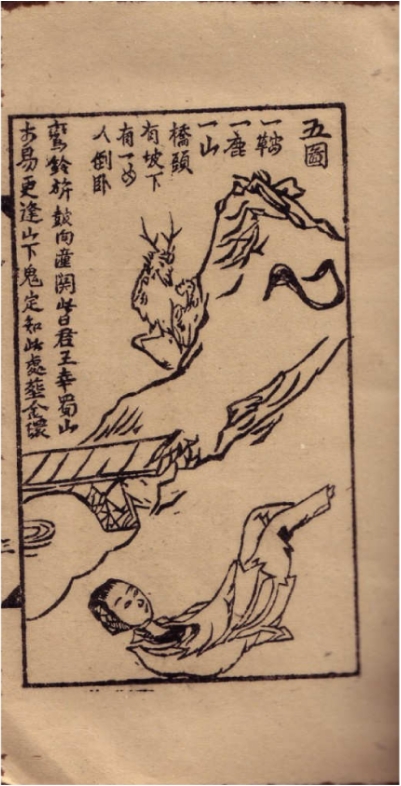 五圖
一鞍
一鹿
一山
橋頭
有坡下
有一女
人倒卧
鈴旂鼓向潼関此日君王幸蜀山
木易更逢山下鬼定知此處塟金環